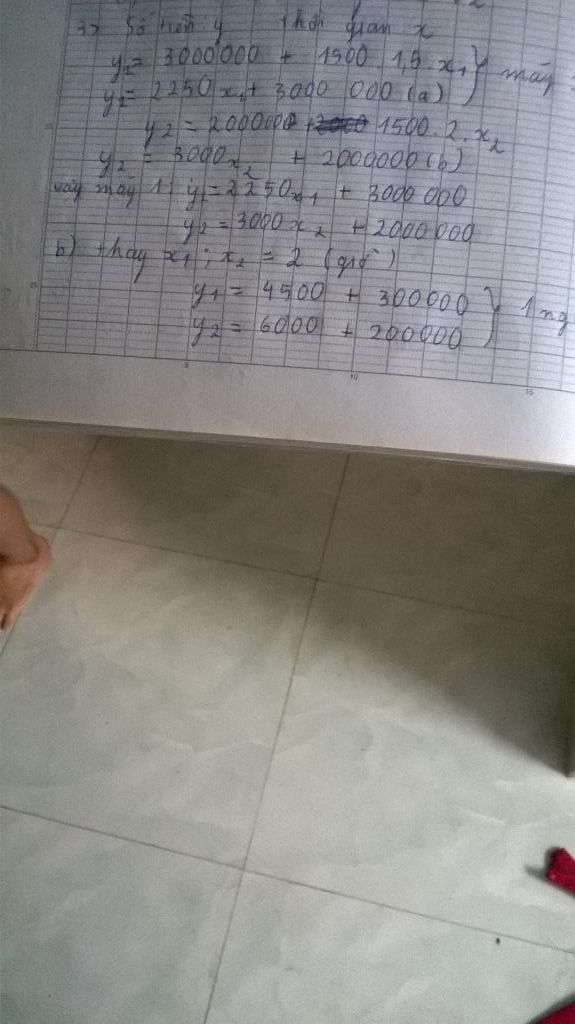 => Số tiền y thời gian x
y1 = 3000000 + 1500.1,5.x1 } máy
y1 = 2250x1 + 3000 000 (a)
y2 = 2000000 + 1500.2.x2
y2 = 3000x2 + 2000000 (b)
vậy máy 1: y1 = 2250x1 + 3000 000
y2 = 3000x2 + 2000000
b) thay x1 ; x2 = 2 (giờ)
y1 = 4500 + 300000 } 1 ng
y2 = 6000 + 200000